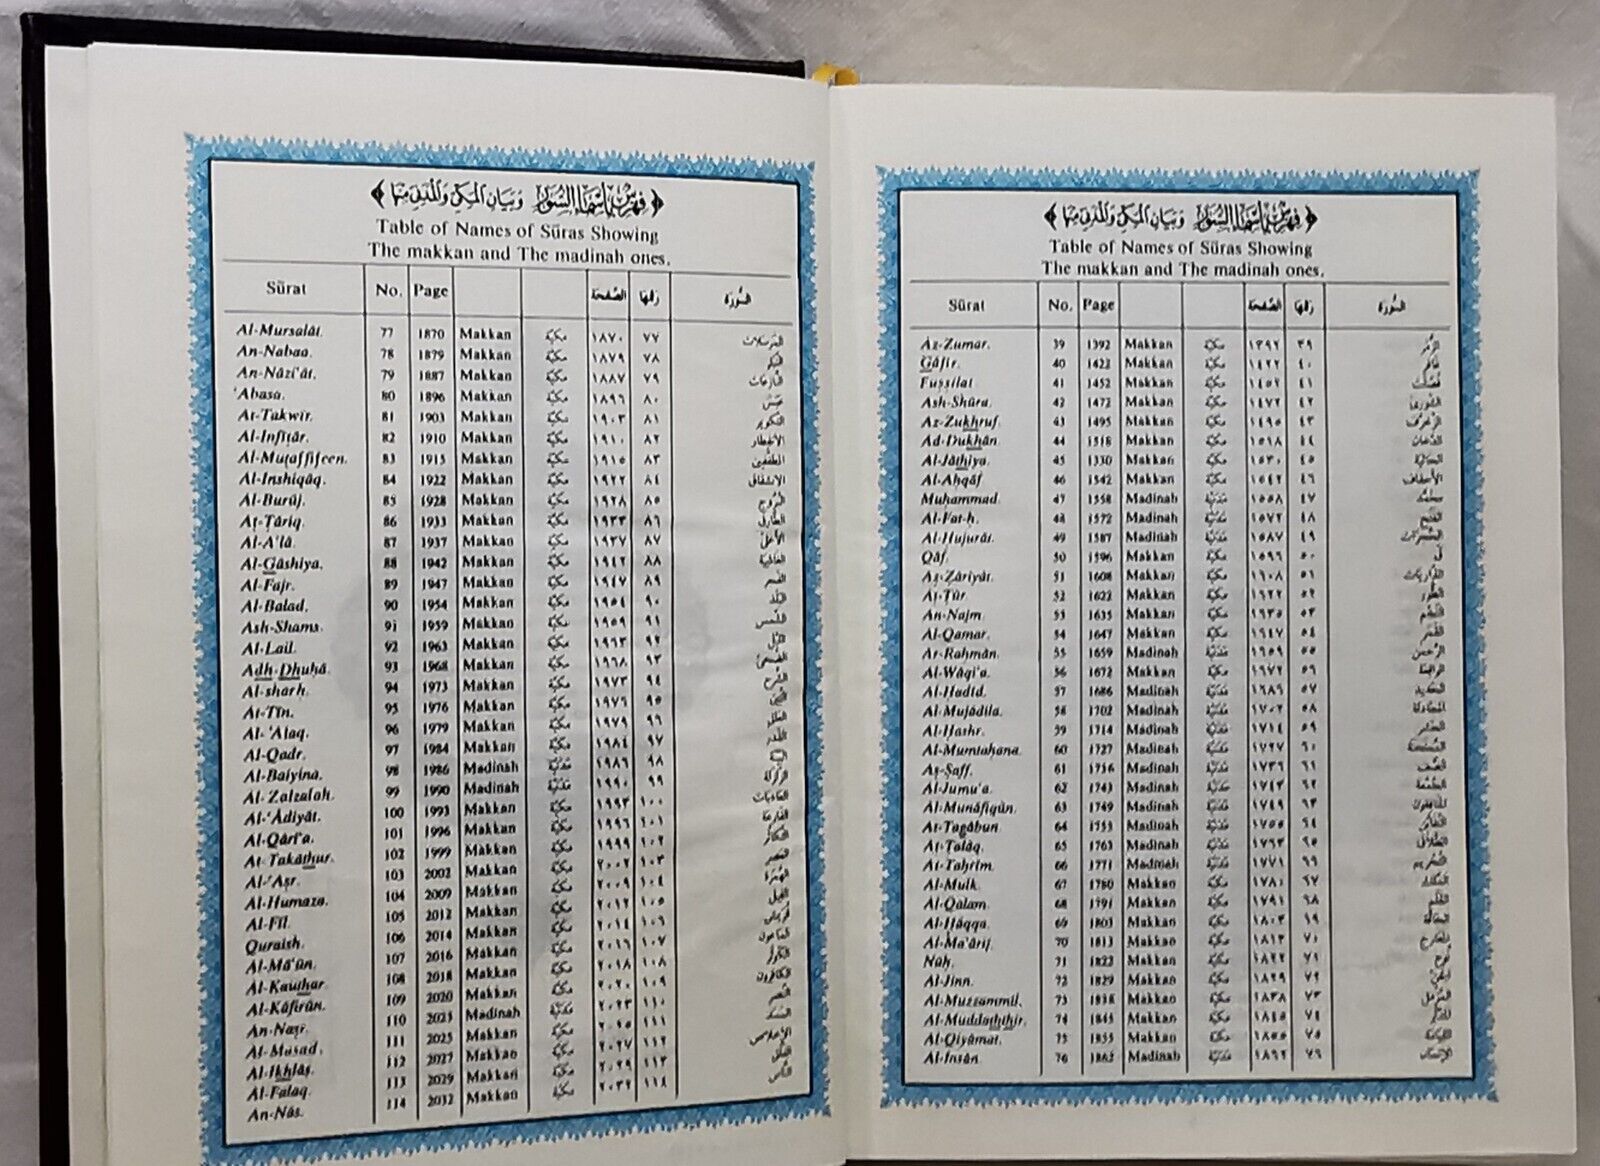 ﴿ فهرس بأسماء السور وبيان المكي والمدني منها ﴾
Table of Names of Sūras Showing
The makkan and The madinah ones.
Sūrat No. Page الصفحة رقمها السورة
Az-Zumar. 39 1392 Makkan مكية ١٣٩٢ ٣٩ الزمر
Gāfir. 40 1422 Makkan مكية ١٤٢٢ ٤٠ غافر
Fuṣṣilat 41 1452 Makkan مكية ١٤٥٢ ٤١ فصلت
Ash-Shūra. 42 1472 Makkan مكية ١٤٧٢ ٤٢ الشورى
Az-Zukhruf. 43 1495 Makkan مكية ١٤٩٥ ٤٣ الزخرف
Ad-Dukhān. 44 1518 Makkan مكية ١٥١٨ ٤٤ الدخان
Al-Jāthiya. 45 1330 Makkan مكية ١٥٣٠ ٤٥ الجاثية
Al-Aḥqāf 46 1542 Makkan مكية ١٥٤٢ ٤٦ الأحقاف
Muḥammad. 47 1558 Madinah مدنية ١٥٥٨ ٤٧ محمد
Al-Fat-ḥ. 48 1572 Madinah مدنية ١٥٧٢ ٤٨ الفتح
Al-Ḥujurāt. 49 1587 Madinah مدنية ١٥٨٧ ٤٩ الحجرات
Qāf. 50 1596 Makkan مكية ١٥٩٦ ٥٠ ق
Aẓ-Ẓāriyāt. 51 1608 Makkan مكية ١٦٠٨ ٥١ الذاريات
Aṭ-Ṭūr 52 1622 Makkan مكية ١٦٢٢ ٥٢ الطور
An-Najm. 53 1635 Makkan مكية ١٦٣٥ ٥٣ النجم
Al-Qamar. 54 1647 Makkan مكية ١٦٤٧ ٥٤ القمر
Ar-Raḥmān. 55 1659 Madinah مدنية ١٦٥٩ ٥٥ الرحمن
Al-Wāqi'a. 56 1672 Makkan مكية ١٦٧٢ ٥٦ الواقعة
Al-Ḥadīd. 57 1686 Madinah مدنية ١٦٨٦ ٥٧ الحديد
Al-Mujādila. 58 1702 Madinah مدنية ١٧٠٢ ٥٨ المجادلة
Al-Ḥashr. 59 1714 Madinah مدنية ١٧١٤ ٥٩ الحشر
Al-Mumtaḥana. 60 1727 Madinah مدنية ١٧٢٧ ٦٠ الممتحنة
Aṣ-Ṣaff. 61 1736 Madinah مدنية ١٧٣٦ ٦١ الصف
Al-Jumu'a. 62 1743 Madinah مدنية ١٧٤٣ ٦٢ الجمعة
Al-Munāfiqūn. 63 1749 Madinah مدنية ١٧٤٩ ٦٣ المنافقون
At-Tagābun 64 1755 Madinah مدنية ١٧٥٥ ٦٤ التغابن
Aṭ-Ṭalāq. 65 1763 Madinah مدنية ١٧٦٣ ٦٥ الطلاق
At-Taḥrīm. 66 1771 Madinah مدنية ١٧٧١ ٦٦ التحريم
Al-Mulk. 67 1780 Makkan مكية ١٧٨٠ ٦٧ الملك
Al-Qalam. 68 1791 Makkan مكية ١٧٩١ ٦٨ القلم
Al-Ḥāqqa. 69 1803 Makkan مكية ١٨٠٣ ٦٩ الحاقة
Al-Ma'ārij. 70 1813 Makkan مكية ١٨١٣ ٧٠ المعارج
Nūḥ. 71 1822 Makkan مكية ١٨٢٢ ٧١ نوح
Al-Jinn. 72 1829 Makkan مكية ١٨٢٩ ٧٢ الجن
Al-Muzzammil. 73 1838 Makkan مكية ١٨٣٨ ٧٣ المزمل
Al-Muddaththir. 74 1845 Makkan مكية ١٨٤٥ ٧٤ المدثر
Al-Qiyāmat. 75 1855 Makkan مكية ١٨٥٥ ٧٥ القيامة
Al-Insān. 76 1862 Madinah مدنية ١٨٦٢ ٧٦ الإنسان
﴿ فهرس بأسماء السور وبيان المكي والمدني منها ﴾
Table of Names of Sūras Showing
The makkan and The madinah ones.
Sūrat No. Page الصفحة رقمها السورة
Al-Mursalāt. 77 1870 Makkan مكية ١٨٧٠ ٧٧ المرسلات
An-Nabaa. 78 1879 Makkan مكية ١٨٧٩ ٧٨ النبأ
An-Nāzi'āt. 79 1887 Makkan مكية ١٨٨٧ ٧٩ النازعات
'Abasa. 80 1896 Makkan مكية ١٨٩٦ ٨٠ عبس
At-Takwīr. 81 1903 Makkan مكية ١٩٠٣ ٨١ التكوير
Al-Infiṭār. 82 1910 Makkan مكية ١٩١٠ ٨٢ الانفطار
Al-Muṭaffifeen. 83 1915 Makkan مكية ١٩١٥ ٨٣ المطففين
Al-Inshiqāq. 84 1922 Makkan مكية ١٩٢٢ ٨٤ الانشقاق
Al-Burūj. 85 1928 Makkan مكية ١٩٢٨ ٨٥ البروج
Aṭ-Ṭāriq. 86 1933 Makkan مكية ١٩٣٣ ٨٦ الطارق
Al-A'lā. 87 1937 Makkan مكية ١٩٣٧ ٨٧ الأعلى
Al-Gāshiya. 88 1942 Makkan مكية ١٩٤٢ ٨٨ الغاشية
Al-Fajr. 89 1947 Makkan مكية ١٩٤٧ ٨٩ الفجر
Al-Balad. 90 1954 Makkan مكية ١٩٥٤ ٩٠ البلد
Ash-Shams. 91 1959 Makkan مكية ١٩٥٩ ٩١ الشمس
Al-Lail. 92 1963 Makkan مكية ١٩٦٣ ٩٢ الليل
Adh-Dhuḥā. 93 1968 Makkan مكية ١٩٦٨ ٩٣ الضحى
Al-sharḥ. 94 1973 Makkan مكية ١٩٧٣ ٩٤ الشرح
At-Tīn. 95 1976 Makkan مكية ١٩٧٦ ٩٥ التين
Al-'Alaq. 96 1979 Makkan مكية ١٩٧٩ ٩٦ العلق
Al-Qadr. 97 1984 Makkan مكية ١٩٨٤ ٩٧ القدر
Al-Baiyina. 98 1986 Madinah مدنية ١٩٨٦ ٩٨ البينة
Al-Zalzalah. 99 1990 Madinah مدنية ١٩٩٠ ٩٩ الزلزلة
Al-'Ādiyāt. 100 1993 Makkan مكية ١٩٩٣ ١٠٠ العاديات
Al-Qāri'a. 101 1996 Makkan مكية ١٩٩٦ ١٠١ القارعة
At-Takāthur. 102 1999 Makkan مكية ١٩٩٩ ١٠٢ التكاثر
Al-'Aṣr. 103 2002 Makkan مكية ٢٠٠٢ ١٠٣ العصر
Al-Humaza. 104 2009 Makkan مكية ٢٠٠٩ ١٠٤ الهمزة
Al-Fīl. 105 2012 Makkan مكية ٢٠١٢ ١٠٥ الفيل
Quraish. 106 2014 Makkan مكية ٢٠١٤ ١٠٦ قريش
Al-Mā'ūn. 107 2016 Makkan مكية ٢٠١٦ ١٠٧ الماعون
Al-Kauthar 108 2018 Makkan مكية ٢٠١٨ ١٠٨ الكوثر
Al-Kāfirūn. 109 2020 Makkan مكية ٢٠٢٠ ١٠٩ الكافرون
An-Naṣr. 110 2023 Madinah مدنية ٢٠٢٣ ١١٠ النصر
Al-Masad. 111 2025 Makkan مكية ٢٠٢٥ ١١١ المسد
Al-Ikhlāṣ. 112 2027 Makkan مكية ٢٠٢٧ ١١٢ الإخلاص
Al-Falaq. 113 2029 Makkan مكية ٢٠٢٩ ١١٣ الفلق
An-Nās. 114 2032 Makkan مكية ٢٠٣٢ ١١٤ الناس